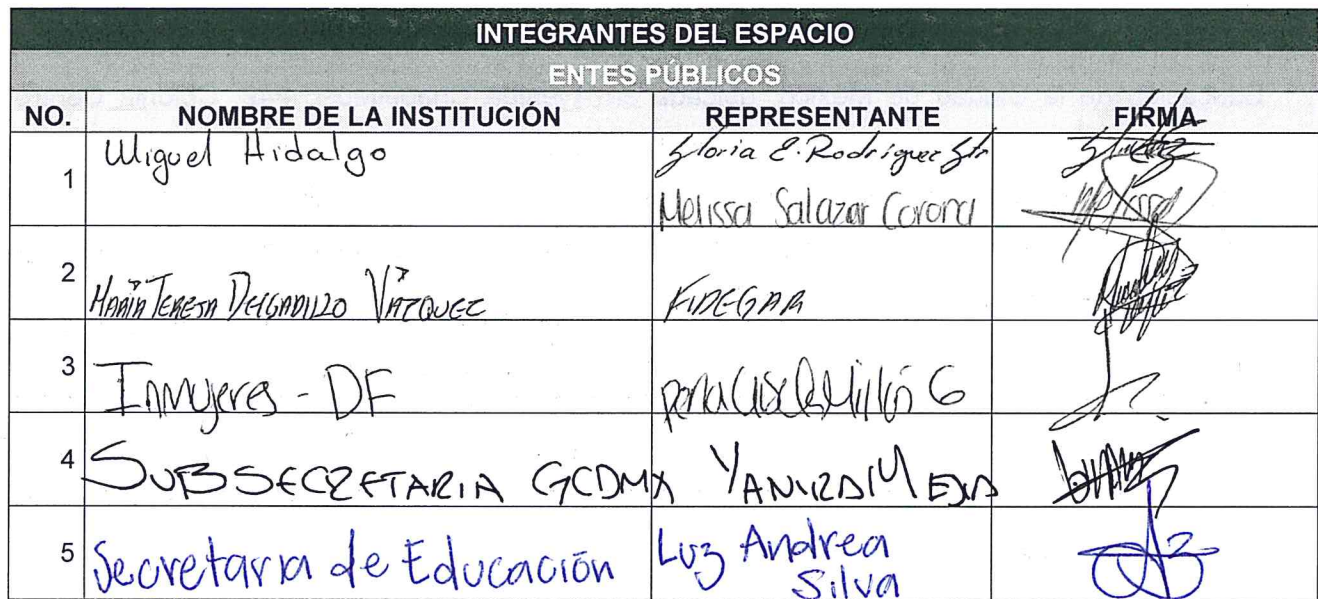 INTEGRANTES DEL ESPACIO
ENTES PÚBLICOS
NO. NOMBRE DE LA INSTITUCIÓN REPRESENTANTE FIRMA
1 Miguel Hidalgo Gloria E. Rodríguez
Melissa Salazar Corona
2 MARÍA TERESA DELGADILLO VÁZQUEZ FIDEGAR
3 Inmujeres - DF
4 SUBSECRETARIA GCDMX YANIRA MEJIA
5 Secretaria de Educación Luz Andrea
Silva